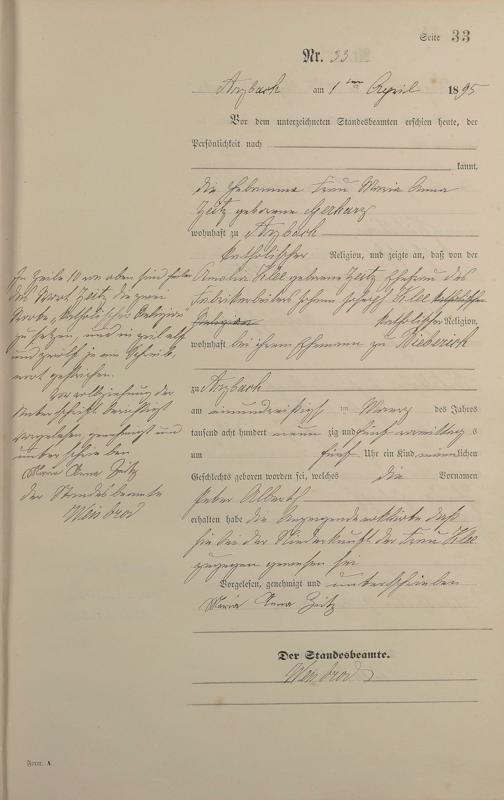 Seite 33
Nr. 33
Arzbach am 1ten April 1895
Vor dem unterzeichneten Standesbeamten erschien heute, der
Persönlichkeit nach
kannt,
die Hebamme Frau Maria Anna
Zeitz geborene Gerharz
wohnhaft zu Arzbach
katholischer Religion, und zeigte an, daß von der
Amalia Klee geborene Zeitz Ehefrau des
Fabrikarbeiters Johann Joseph Klee katholischer
Religion katholischer Religion,
wohnhaft bei ihrem Ehemann zu Bieberich
zu Arzbach
am einunddreißigsten März des Jahres
tausend acht hundert neunzig und fünf vormittags
um fünf Uhr ein Kind, männlichen
Geschlechts geboren worden sei, welches die Vornamen
Peter Albert
erhalten habe die Anzeigende erklärte daß
sie bei der Niederkunft der Frau Klee
zugegen gewesen sei
Vorgelesen, genehmigt und unterschrieben
Maria Anna Zeitz
Der Standesbeamte.
Weisbrod
In Zeile 10 von oben sind hinter
das Wort Zeitz die zwei
Worte, katholischer Religion
zu setzen, und in
und zwölf
gestrichen.
Vorgelesen genehmigt und
unterschrieben
Maria Anna Zeitz
der Standesbeamte
Weisbrod
Form. A